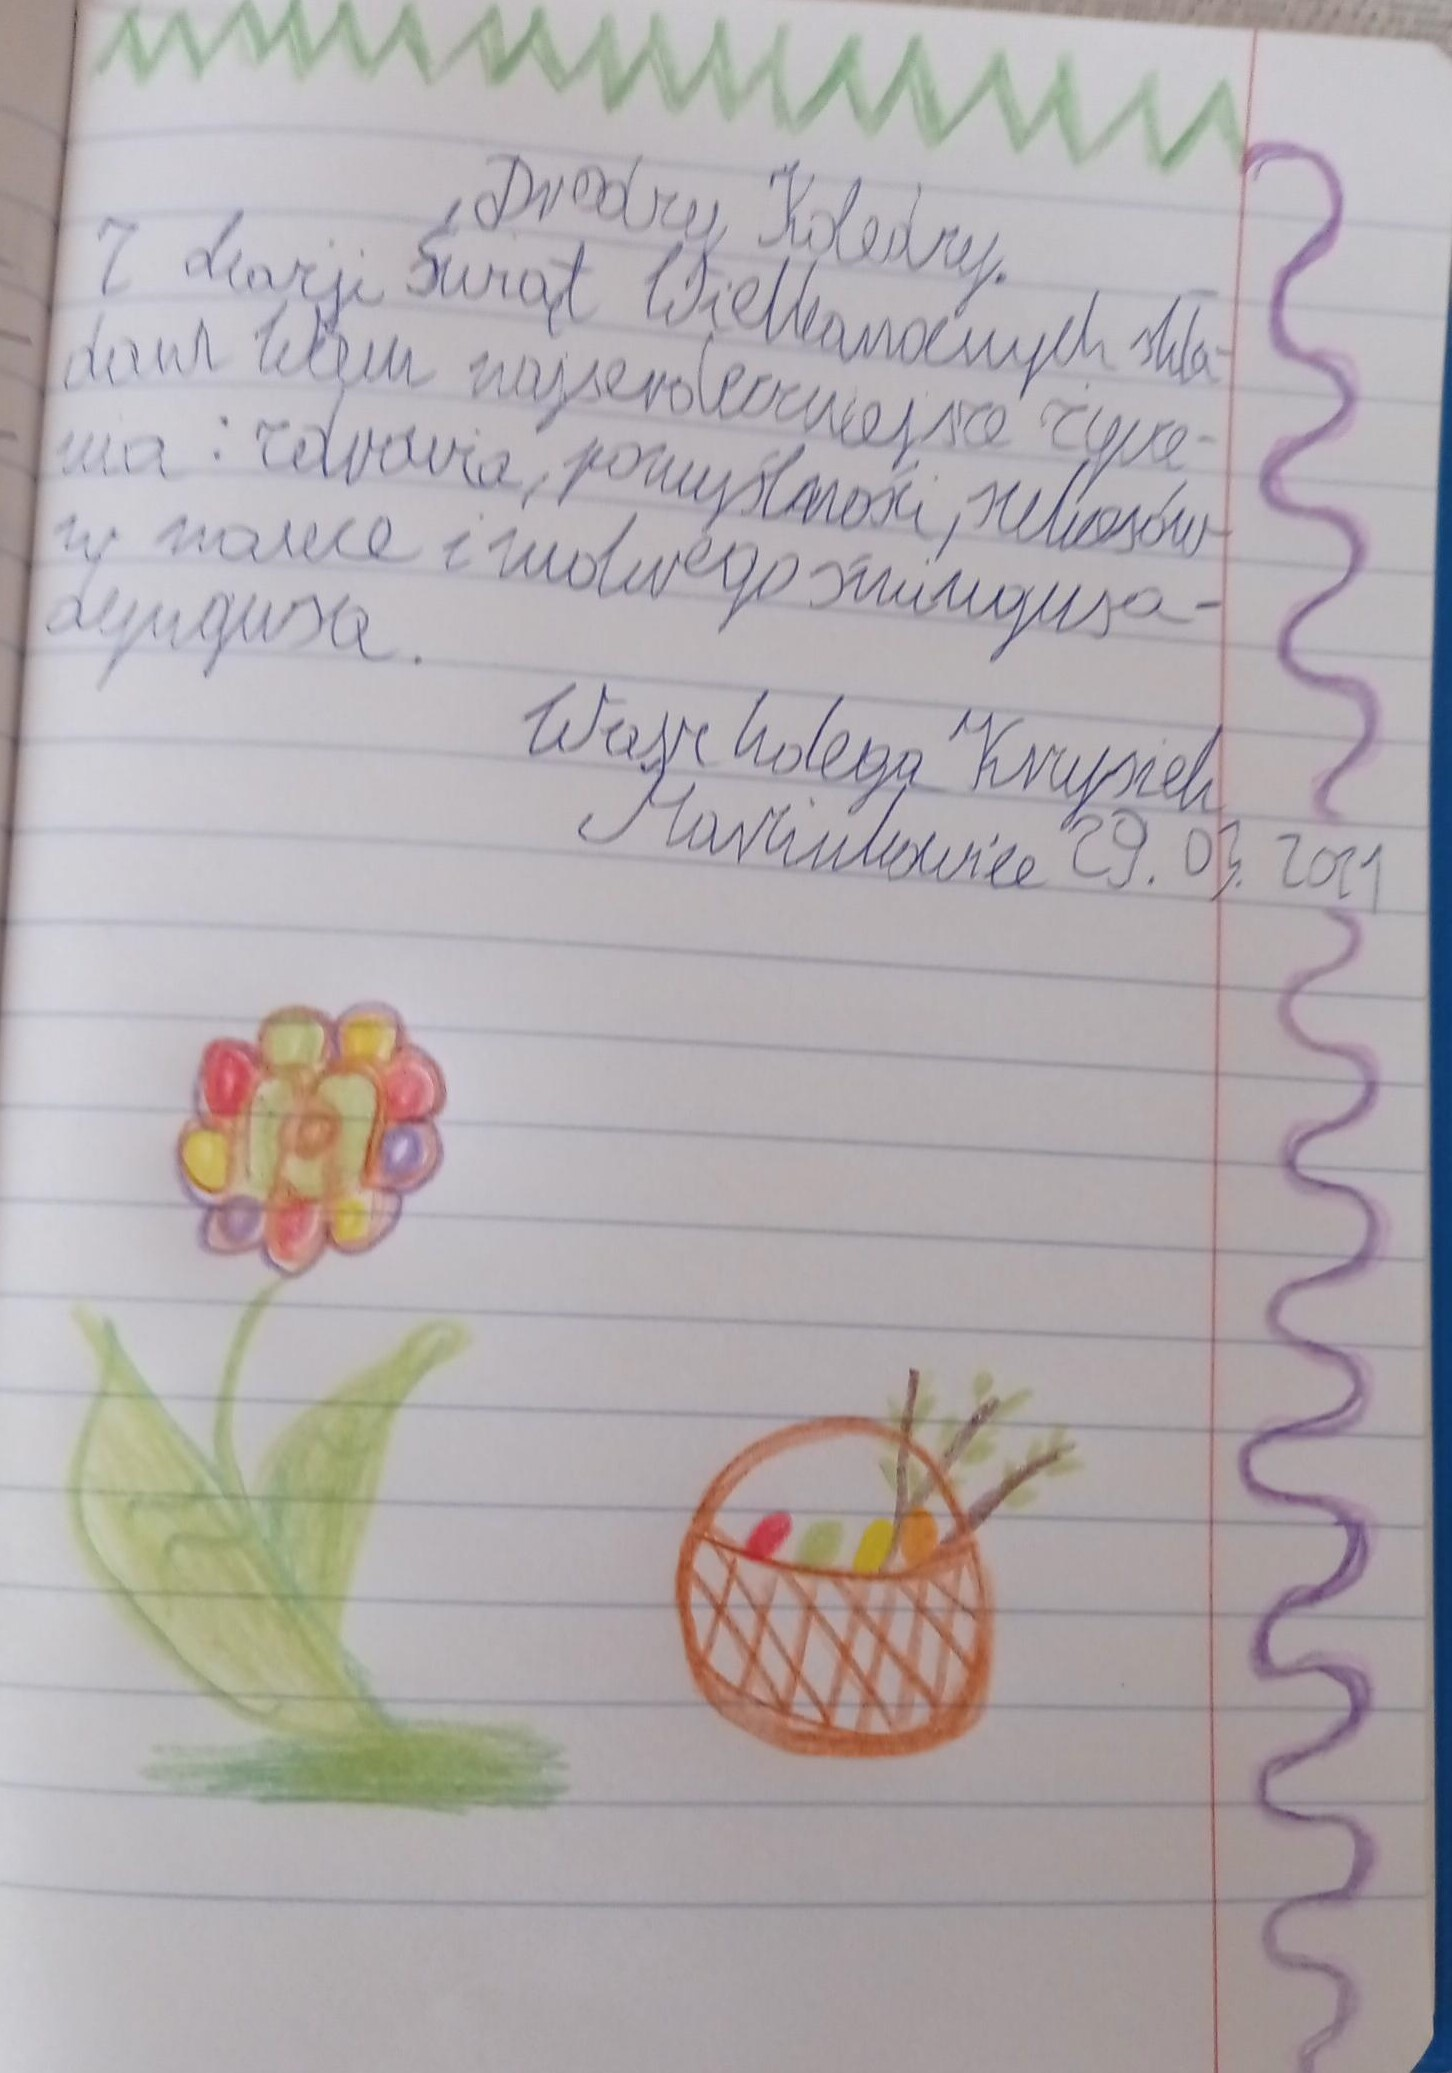 Drodzy Koledzy.
Z okazji Świąt Wielkanocnych skła-
dam Wam najserdeczniejsze życze-
nia: zdrowia, pomyślności, sukcesów
w nauce i mokrego śmingusa-
dyngusa.
Wasz kolega Krzysiek
Marcinkowice 29.03.2021